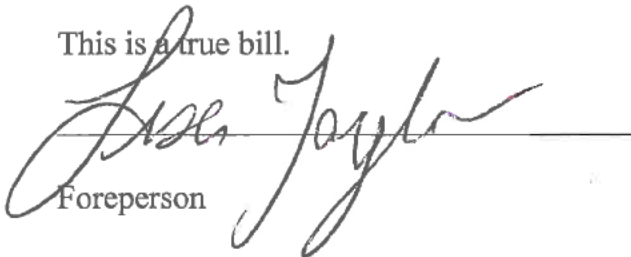 This is a true bill.
Lisa Taylor
Foreperson